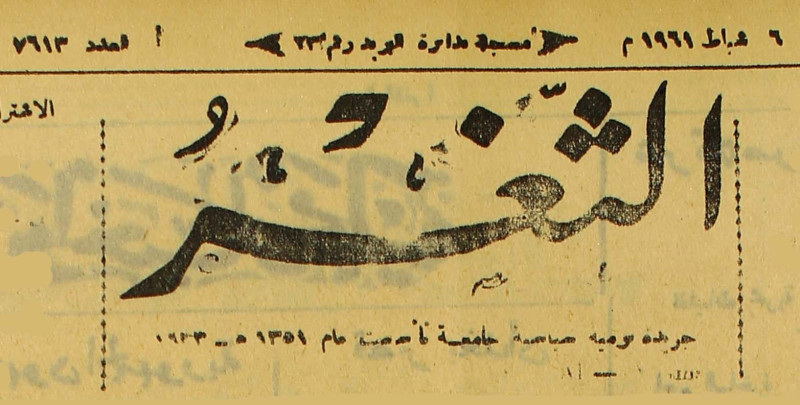 ٦ شباط ١٩٦١ م
مسجلة بدائرة البريد رقم ٢٣
العدد ٧٦١٣
الاشترا
الثَّغْرُ
جريدة يومية سياسية جامعة تأسست عام ١٣٥١ هـ - ١٩٣٣ م